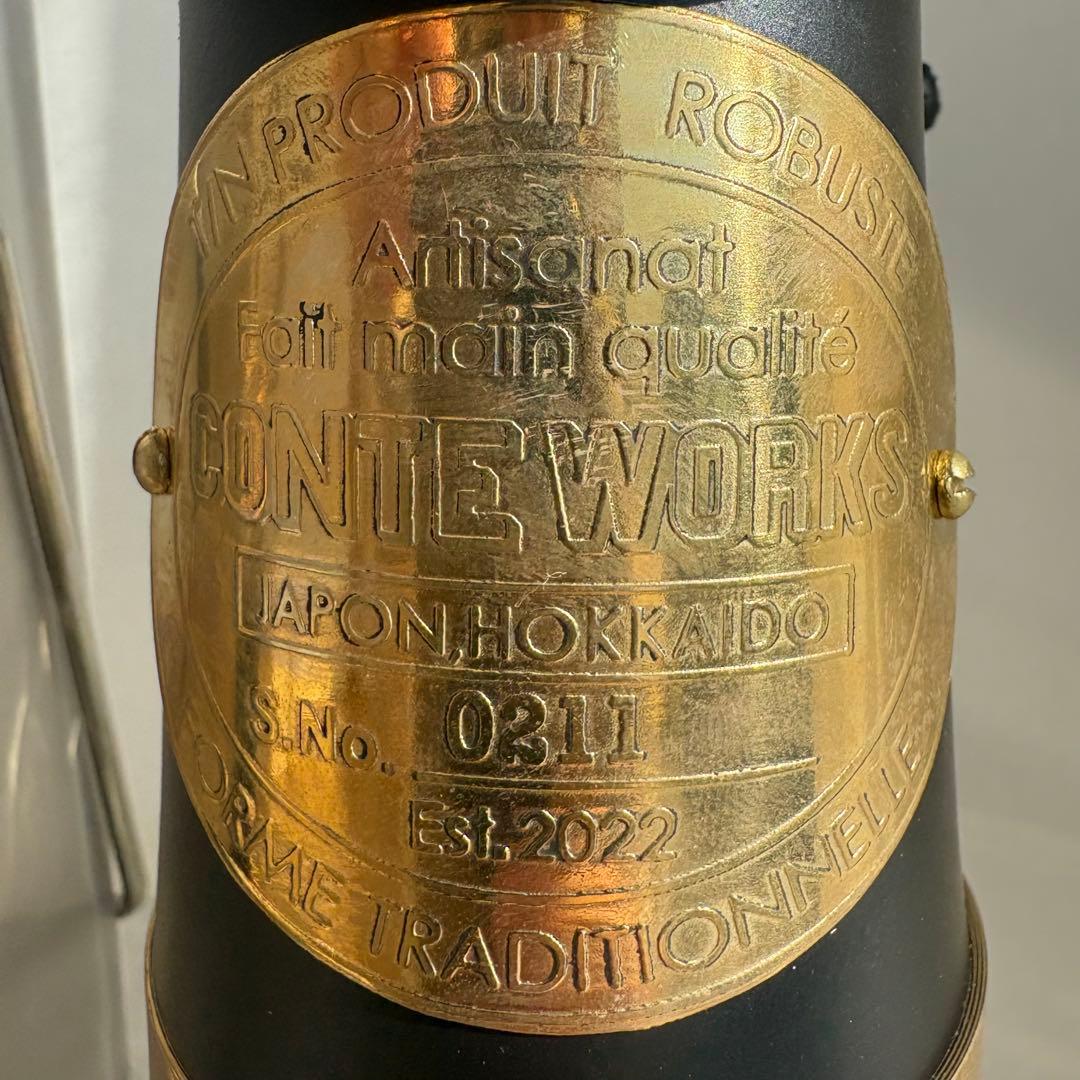 UN PRODUIT ROBUSTE
Artisanat
Fait main qualité
CONTE WORKS
JAPON, HOKKAIDO
S.No. 0211
Est. 2022
FORME TRADITIONNELLE